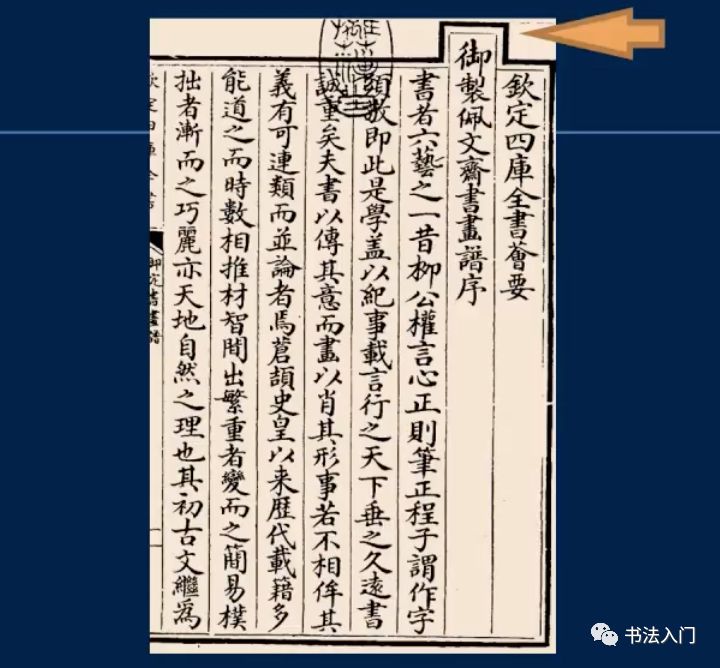 欽定四庫全書薈要
御製佩文齋書畫譜序
書者六藝之一昔柳公權言心正則筆正程子謂作字
須敬即此是學盖以紀事載言行之天下垂之久遠書
誠重矣夫書以傳其意而畫以肖其形事若不相侔其
義有可連類而並論者焉蒼頡史皇以来歷代載籍多
能道之而時數相推材智間出繁重者變而之簡易樸
拙者漸而之巧麗亦天地自然之理也其初古文繼為
欽定四庫全書
御定書畫譜
一
书法入门